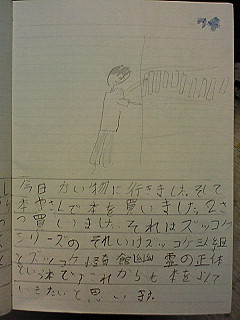 今日かい物に行きました。そして
本やさんで本を買いました。2さ
つ買いました。それはズッコケ
シリーズのそれいけズッコケ三人組
とズッコケ怪奇館幽霊の正体
という本です。これからも本をよんで
いきたいと思います